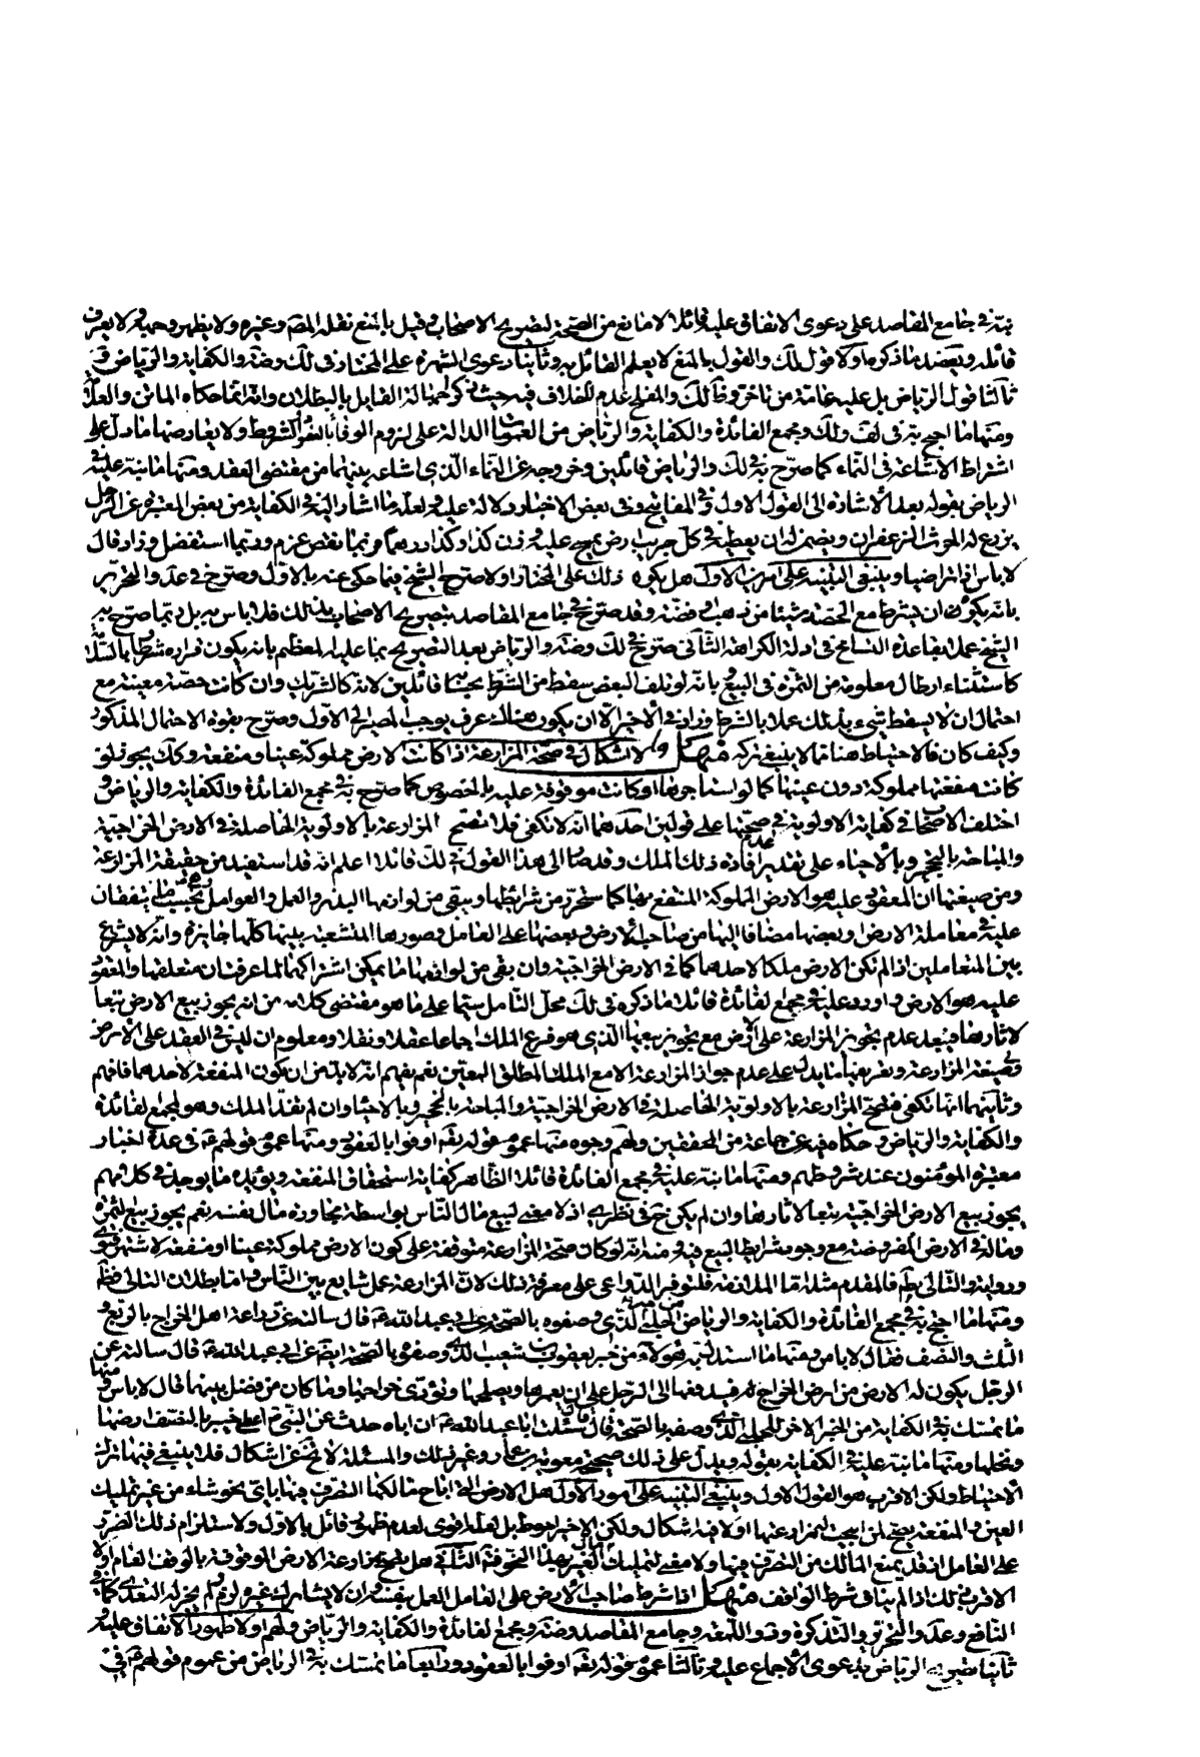 به في جامع المقاصد على دعوى الاتفاق عليه قائلا لا مانع من الصحة لتصريح الاصحاب وقيل بالمنع نقله المص وغيره ولا يظهر وجهه ولا يعرف
قائله ويعضد ما ذكره اولا قول لك والقول بالمنع لا يعلم القائل به وثانيا دعوى الشهرة على المختار في لك وضة والكفاية والرياض وفي
ثالثا قول الرياض بل عليه عامة من تاخر وظاهر لك والمفاتيح عدم الخلاف فيه حيث لم يذكرا القايل بالبطلان وانه انما حكاه الماتن والعلامة
ومنها ما احتج به في لف ولك ومجمع الفائدة والكفاية والرياض من العمومات الدالة على لزوم الوفاء بالعقود والشروط ولا يعارضها ما دل على
اشتراط الاشاعة في النماء كما صرح به في لك والرياض قائلين وخروجه عن النماء الذي اشاعه بينهما من مقتضى العقد ومنها ما نبه عليه في
الرياض بقوله بعد الاشارة الى القول الاول وفي المفاتيح وفي بعض الاخبار دلالة عليه ولعله ما اشار اليه في الكفاية من بعض المعتبرة عن الرجل
يزرع له الحراث الزعفران ويضمن له ان يعطيه في كل جريب ارض يمسح عليه وزن كذا وكذا درهما فربما نقص وغرم وربما استفضل وزاد قال
لا باس اذا تراضيا وينبغي التنبيه على امرين الاول هل يكره ذلك على المختار اولا صرح الشيخ فيما حكى عنه بالاول وصرح في عد والتحرير
بانه يكره ان يشترط مع الحصة شيئا من ذهب او فضة وقد صرح في جامع المقاصد بتصريح الاصحاب بذلك فلا باس به بل ربما صرح به
الشيخ عملا بقاعدة التسامح في ادلة الكراهة الثاني صرح في لك وضة والرياض بعد التصريح بما عليه المعظم بانه يكون قراره مشروطا بالسلامة
كاستثناء ارطال معلومة من الثمرة في البيع بانه لو تلف البعض سقط من الشرط بحسابه قائلين لانه كالشريك وان كانت حصته معينة مع
احتمال ان لا يسقط شيء بذلك عملا بالشرط وزاد في الاخير الا ان يكون هناك عرف يوجب المصير الى الاول وصرح بقوة الاحتمال المذكور
وكيف كان فالاحتياط هنا مما لا ينبغي تركه منهل ولا اشكال في صحة المزارعة اذا كانت الارض مملوكة عينا ومنفعة وكك يجوز لو
كانت منفعتها مملوكة دون عينها كما لو استاجرها او كانت موقوفة عليه بالخصوص كما صرح به في مجمع الفائدة والكفاية والرياض و
اختلف الاصحاب في كفاية الاولوية في صحتها على قولين احدهما انه لا تكفي فلا تصح المزارعة بالاولوية الحاصلة في الارض الخراجية
والمباحة بالتحجير وبالاحياء على تقدير عدم افادة ذلك الملك وقد صار الى هذا القول في لك قائلا اعلم انه قد استفيد من حقيقة المزارعة
ومن صيغتها ان المعقود عليه هو الارض المملوكة المنتفع بها كما سيحرر من شرائطها ويبقى من لوازمها البذر والعمل والعوامل وهي بحسب ما يتفقان
عليه في مقابلة الارض او بعضها مضافا اليها من صاحب الارض وبعضها على العامل وصورها المتشعبة بينها كلها جايزة وانه لا يشرع
بين المتعاملين اذا لم تكن الارض ملكا لاحدهما كما في الارض الخراجية وان بقي من لوازمها ما يمكن اشتراكهما لما عرفت ان متعلقها والمعقود
عليه هو الارض واورد عليه في مجمع الفائدة قائلا ما ذكره في لك محل التامل سيما على ما هو مقتضى كلامه من انه يجوز بيع الارض تبعا
لاثارها فيبعد عدم تجويز المزارعة على الارض مع تجويز بيعها الذي هو فرع الملك اجماعا عقلا ونقلا ومعلوم ان ليس في العقد على الارض
وصيغة المزارعة وتعريفها ما يدل على عدم جواز المزارعة الا مع الملك المطلق المعين نعم يفهم انه لا بد من ان يكون المنفعة لاحدهما فافهم
وثانيهما انها تكفي فتصح المزارعة بالاولوية الحاصلة في الارض الخراجية والمباحة بالتحجير وبالاحياء وان لم نقل بالملك وهو لمجمع الفائدة
والكفاية والرياض وحكاه فيه عن جماعة من المحققين ولهم وجوه منها عموم قوله تعالى اوفوا بالعقود ومنها عموم قولهم ع في عدة اخبار
معتبرة المؤمنون عند شروطهم ومنها ما نبه عليه في مجمع الفائدة قائلا الظاهر كفاية استحقاق المنفعة ويؤيده ما يوجد في كلامهم
يجوز بيع الارض الخراجية تبعا لاثارها وان لم يكن صح في نظري اذ لا معنى لبيع مال الناس بواسطة مجاورة مال نفسه نعم يجوز بيع الثمرة
وماله في الارض المفروضة مع وجود شرايط البيع فيه ومنها انه لو كان صحة المزارعة متوقفة على كون الارض مملوكة عينا او منفعة لاشتهر فتوى
ورواية والتالي بط فالمقدم مثله اما الملازمة فلتوفر الدواعي على معرفة ذلك لان المزارعة عمل شايع بين الناس واما بطلان التالي فظاهر
ومنها ما احتج به في مجمع الفائدة والكفاية والرياض من خبر الحلبي الذي وصفوه بالصحة عن ابي عبد الله ع قال سالته عن مزارعة اهل الخراج بالربع و
الثلث والنصف فقال لا باس ومنها ما استدل به هؤلاء من خبر يعقوب بن شعيب الذي وصفوه بالصحة ايضا عن ابي عبد الله ع قال سالته عن
الرجل يكون له الارض من ارض الخراج فيدفعها الى الرجل على ان يعمرها ويصلحها ويؤدي خراجها وما كان من فضل بينهما قال لا باس ومنها
ما تمسك به في الكفاية من الخبر الاخر للحلبي الذي وصفه بالصحة قال سئلت ابا عبد الله ع ان اباه حدث عن النبي ص اعطى خيبر بالنصف ارضها
ونخلها ومنها ما نبه عليه في الكفاية بقوله ويدل على ذلك صحيحة معوية بن عمار وغير ذلك والمسئلة لا تخ عن اشكال فلا ينبغي فيها ترك
الاحتياط ولكن الاقرب هو القول الاول وينبغي التنبيه على امور الاول هل الارض التي اباح مالكها التصرف فيها باي نحو شاء من غير تمليك
العين والمنفعة يصح لمن ابيحت له مزارعتها اولا فيه اشكال ولكن الاخير احوط بل لعله اقوى لعدم ظهور قائل بالاول ولاستلزام ذلك الضرر
على العامل اذ قد يمنع المالك من التصرف فيها ولا معنى لتمليك مال الغير بهذا النحو فت الثاني هل تصح مزارعة الارض الموقوفة بالوقف العام اولا
الاقرب ذلك اذا لم يناف شرط الواقف منهل اذا شرط صاحب الارض على العامل العمل بنفسه وان لا يشارك غيره لزم ولم يجز له التعدي كما في
النافع وعد والتحرير والتذكرة وفد واللمعة وجامع المقاصد وضة ومجمع الفائدة والكفاية والرياض ولهم اولا ظهور الاتفاق عليه و
ثانيا تصريح الرياض بدعوى الاجماع عليه وثالثا عموم قوله تعالى اوفوا بالعقود ورابعا ما تمسك به في الرياض من عموم قولهم ع في